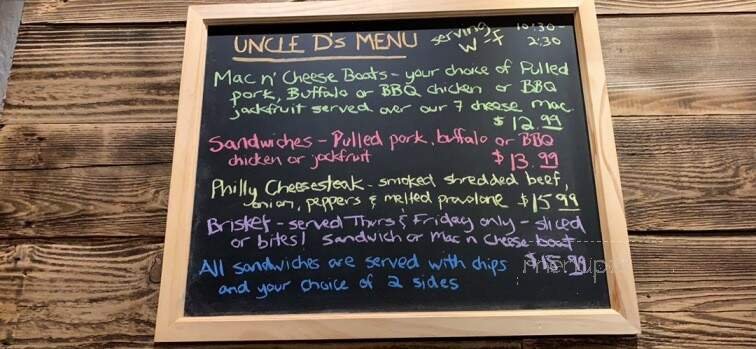 UNCLE D's MENU serving W-F 10:30-2:30
Mac n' Cheese Boats - your choice of Pulled
pork, Buffalo or BBQ chicken or BBQ
jackfruit served over our 7 cheese mac.
$12.99
Sandwiches - Pulled pork, buffalo or BBQ
chicken or jackfruit $13.99
Philly Cheesesteak - smoked shredded beef,
onion, peppers & melted provolone $15.99
Brisket - served Thurs & Friday only - sliced
or bites! Sandwich or Mac n Cheese boat
$15.99
All sandwiches are served with chips
and your choice of 2 sides